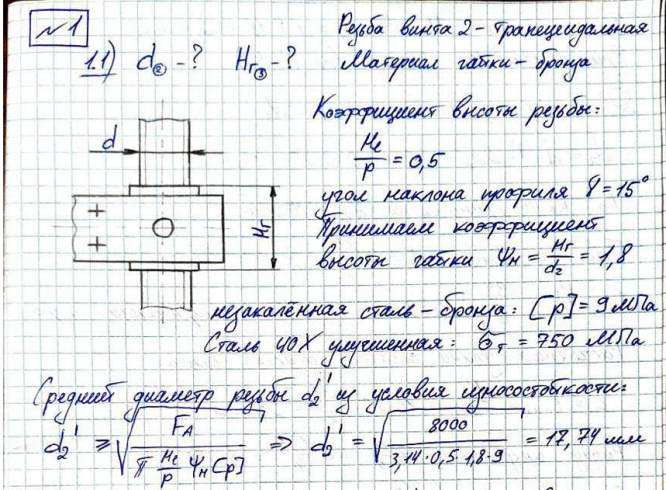 №1
Резьба винта 2 - трапецеидальная
1.1) d② - ? Hг③ - ? Материал гайки - бронза
Коэффициент высоты резьбы:
He/p = 0,5
d
угол наклона профиля γ = 15°
Принимаем коэффициент
высоты гайки Ψн = Hг/d2 = 1,8
Hг
незакалённая сталь - бронза: [p] = 9 МПа
Сталь 40Х улучшенная: σт = 750 МПа
Средний диаметр резьбы d2' из условия износостойкости:
d2' ≥ √(FA / (π He/p Ψн [p])) => d2' = √(8000 / (3,14·0,5·1,8·9)) = 17,74 мм